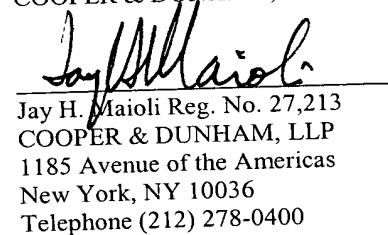 COOPER & DUNHAM,
Jay H. Maioli
Jay H. Maioli Reg. No. 27,213
COOPER & DUNHAM, LLP
1185 Avenue of the Americas
New York, NY 10036
Telephone (212) 278-0400